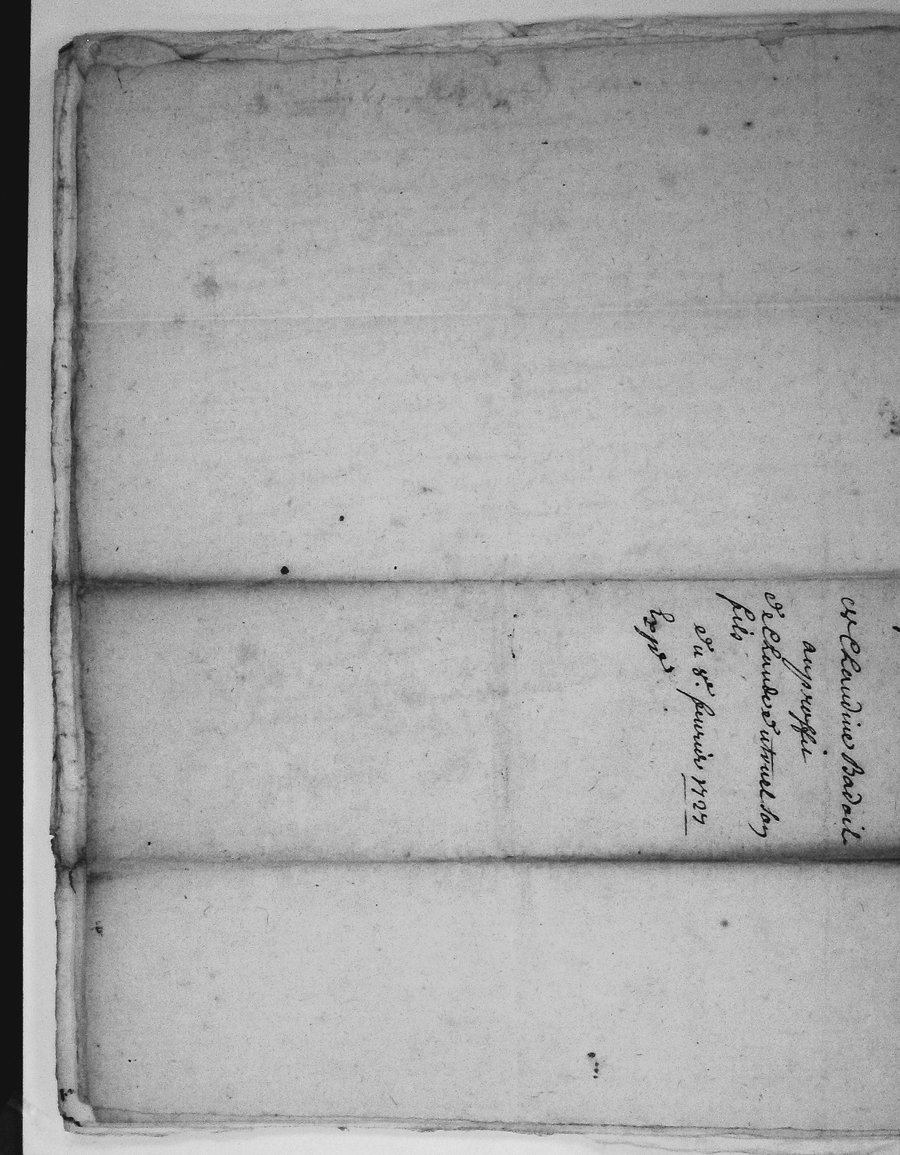 et Claudine Badoil
au proffit
de Claude Dutruel son
fils
du 8e. feurier 1727
Expé